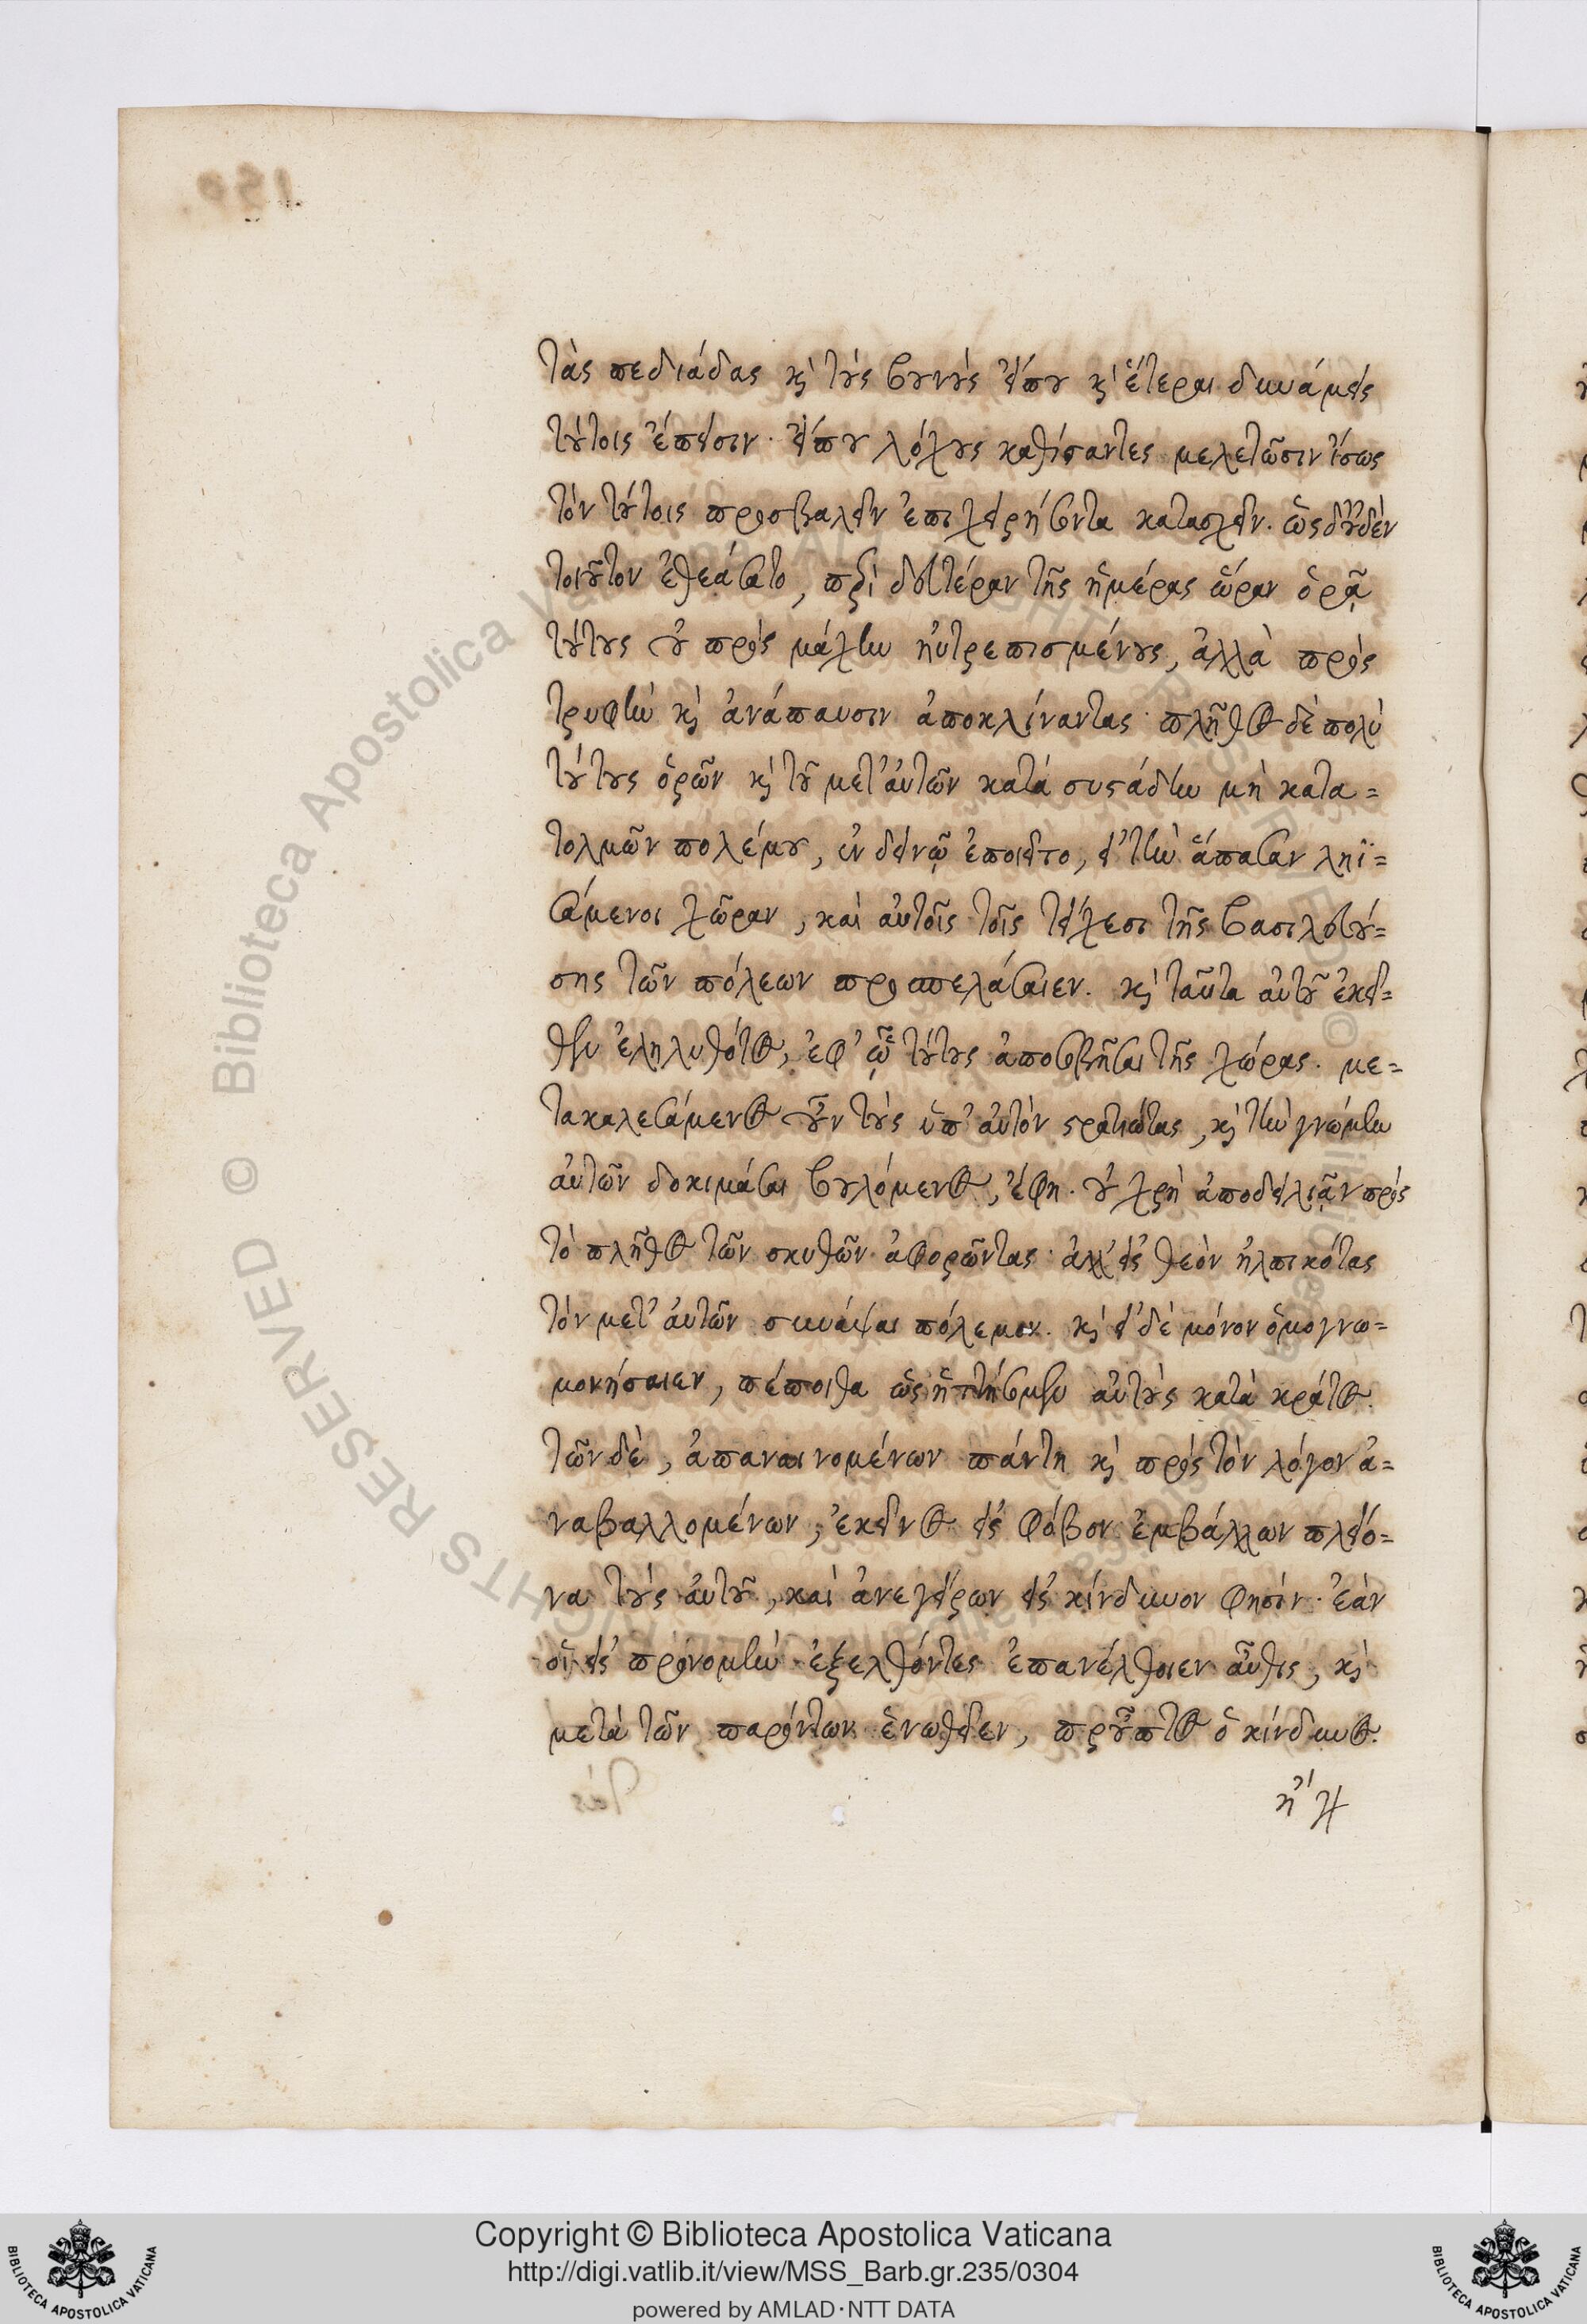 τὰς πεδιάδας κὶ τοὺς βουνοὺς εἴπου κὶ ἕτεραι δυνάμεις
τούτοις ἔπεισιν. εἴπου λόχους καθίσαντες μελετῶσιν ἴσως
τὸν τούτοις προσβαλεῖν ἐπιχειρήσοντα κατασχεῖν. ὡς δ' οὐδὲν
τοιοῦτον ἐθεάσατο, περὶ δευτέραν τῆς ἡμέρας ὥραν ὁρᾷ
τούτους οὐ πρὸς μάχην ηὐτρεπισμένους, ἀλλὰ πρὸς
τρυφὴν κὶ ἀνάπαυσιν ἀποκλίναντας· πλῆθος δὲ πολὺ
τούτους ὁρῶν κὶ τοῦ μετ' αὐτῶν κατὰ συστάδην μὴ κατα=
τολμῶν πολέμου, ἐν δεινῷ ἐποιεῖτο, εἰ τὴν ἅπασαν ληϊ=
σάμενοι χῶραν, καὶ αὐτοῖς τοῖς τείχεσι τῆς βασιλευού=
σης τῶν πόλεων προσπελάσαιεν. κὶ ταῦτα αὐτοῦ ἐκεῖ=
θεν ἐληλυθότος, ἐφ' ᾧτε τούτους ἀποσοβῆσαι τῆς χώρας. με=
τακαλεσάμενος οὖν τοὺς ὑπ' αὐτὸν στρατιώτας, κὶ τὴν γνώμην
αὐτῶν δοκιμάσαι βουλόμενος, ἔφη. οὐ χρὴ ἀποδειλιᾷν πρὸς
τὸ πλῆθος τῶν σκυθῶν ἀφορῶντας· ἀλλ' εἰς θεὸν ἠλπικότας
τὸν μετ' αὐτῶν συνάψαι πόλεμον. κὶ εἰ δὲ μόνον ὁμογνω=
μονήσαιεν, πέποιθα ὡς ἡττήσομεν αὐτοὺς κατὰ κράτος.
τῶν δὲ, ἀπαναινομένων πάντη κὶ πρὸς τὸν λόγον ἀ=
ναβαλλομένων, ἐκεῖνος εἰς φόβον ἐμβάλλων πλείο=
να τοὺς αὐτοῦ, καὶ ἀνεγείρων εἰς κίνδυνον φησίν· ἐὰν
οἱ εἰς προνομὴν ἐξελθόντες ἐπανέλθοιεν αὖθις, κὶ
μετὰ τῶν παρόντων ἑνωθεῖεν, προὖπτος ὁ κίνδυνος.
ἢ γὰρ
Copyright © Biblioteca Apostolica Vaticana
http://digi.vatlib.it/view/MSS_Barb.gr.235/0304
powered by AMLAD·NTT DATA